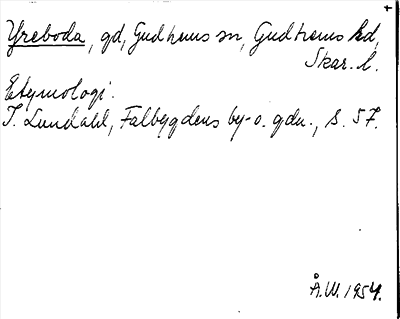 Yreboda, gd, Gudhems sn, Gudhems hd,
Skar. l.
Etymologi.
I. Lundahl, Falbygdens by- o. gdn., s. 57.
Å.W. 1954.